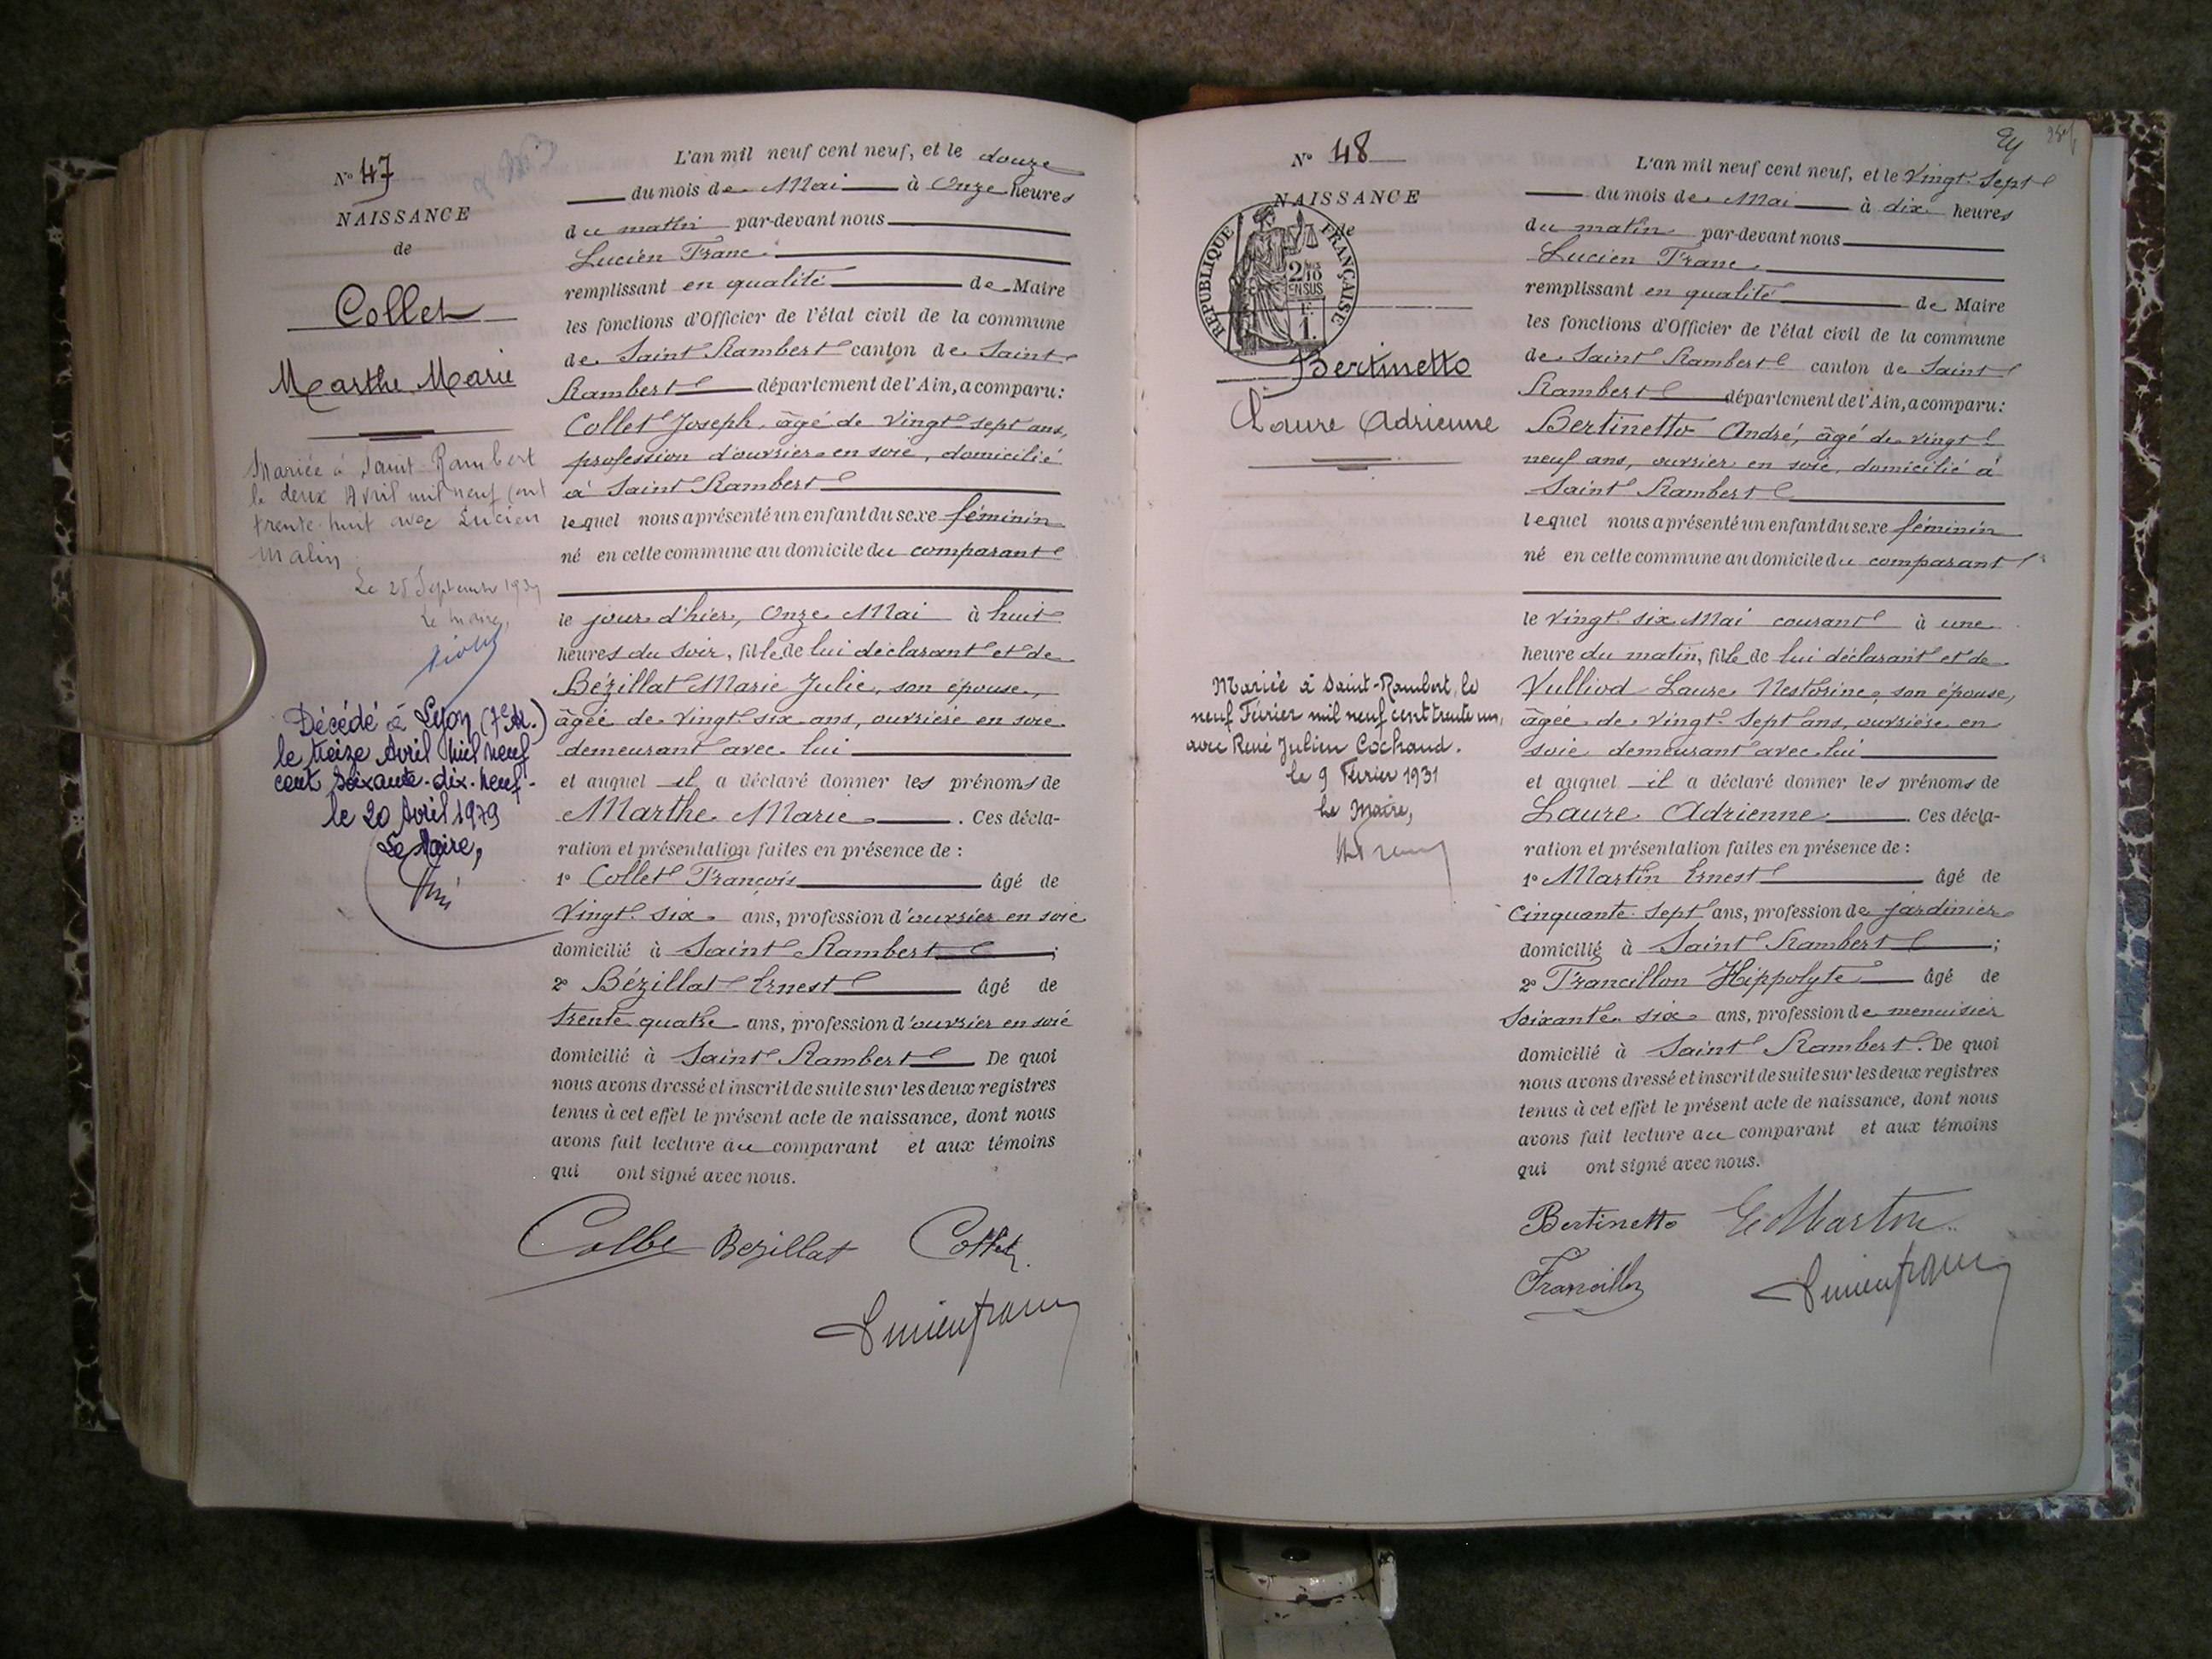 N° 47
NAISSANCE
de
Collet
Marthe Marie
Mariée à Saint-Rambert
le deux Avril mil neuf cent
trente huit avec Lucien
Malin
Le 25 Septembre 1939
Le maire,
Décédé à Lyon (7e Ar.)
le treize Avril mil neuf
cent soixante-dix-neuf-
le 20 Avril 1979
Le Maire,
L'an mil neuf cent neuf, et le douze
du mois de Mai à Onze heures
du matin par-devant nous
Lucien Franc
remplissant en qualité de Maire
les fonctions d'Officier de l'état civil de la commune
de Saint Rambert canton de Saint
Rambert département de l'Ain, a comparu:
Collet Joseph, âgé de vingt-sept ans,
profession d'ouvrier en soie, domicilié
à Saint Rambert
lequel nous a présenté un enfant du sexe féminin
né en cette commune au domicile du comparant
le jour d'hier, Onze Mai à huit
heures du soir, fille de lui déclarant et de
Bézillat Marie Julie, son épouse,
âgée de vingt-six ans, ouvrière en soie
demeurant avec lui
et auquel il a déclaré donner les prénoms de
Marthe Marie. Ces décla-
ration et présentation faites en présence de :
1° Collet François âgé de
Vingt six ans, profession d'ouvrier en soie
domicilié à Saint Rambert ;
2° Bézillat Ernest âgé de
trente quatre ans, profession d'ouvrier en soie
domicilié à Saint Rambert De quoi
nous avons dressé et inscrit de suite sur les deux registres
tenus à cet effet le présent acte de naissance, dont nous
avons fait lecture au comparant et aux témoins
qui ont signé avec nous.
Bezillat Collet
Lucien franc
N° 48
NAISSANCE
de
REPUBLIQUE FRANÇAISE
2/10
EN SUS
1F.
Bertinetto
Laure Adrienne
Mariée à Saint-Rambert, le
neuf Février mil neuf cent trente un,
avec René Julien Cochand.
le 9 Février 1931
Le Maire,
L'an mil neuf cent neuf, et le Vingt-Sept
du mois de Mai à dix heures
du matin par-devant nous
Lucien Franc
remplissant en qualité de Maire
les fonctions d'Officier de l'état civil de la commune
de Saint Rambert canton de Saint
Rambert département de l'Ain, a comparu:
Bertinetto André, âgé de vingt
neuf ans, ouvrier en soie, domicilié à
Saint Rambert
lequel nous a présenté un enfant du sexe féminin
né en cette commune au domicile du comparant
le Vingt-six Mai courant à une
heure du matin, fille de lui déclarant et de
Vulliod Laure Nestorine, son épouse,
âgée de vingt-sept ans, ouvrière en
soie demeurant avec lui
et auquel il a déclaré donner les prénoms de
Laure Adrienne. Ces décla-
ration et présentation faites en présence de :
1° Martin Ernest âgé de
Cinquante-Sept ans, profession de jardinier
domicilié à Saint Rambert ;
2° Francillon Hippolyte âgé de
Soixante six ans, profession de menuisier
domicilié à Saint Rambert. De quoi
nous avons dressé et inscrit de suite sur les deux registres
tenus à cet effet le présent acte de naissance, dont nous
avons fait lecture au comparant et aux témoins
qui ont signé avec nous.
Bertinetto E Martin
Francillon Lucien franc